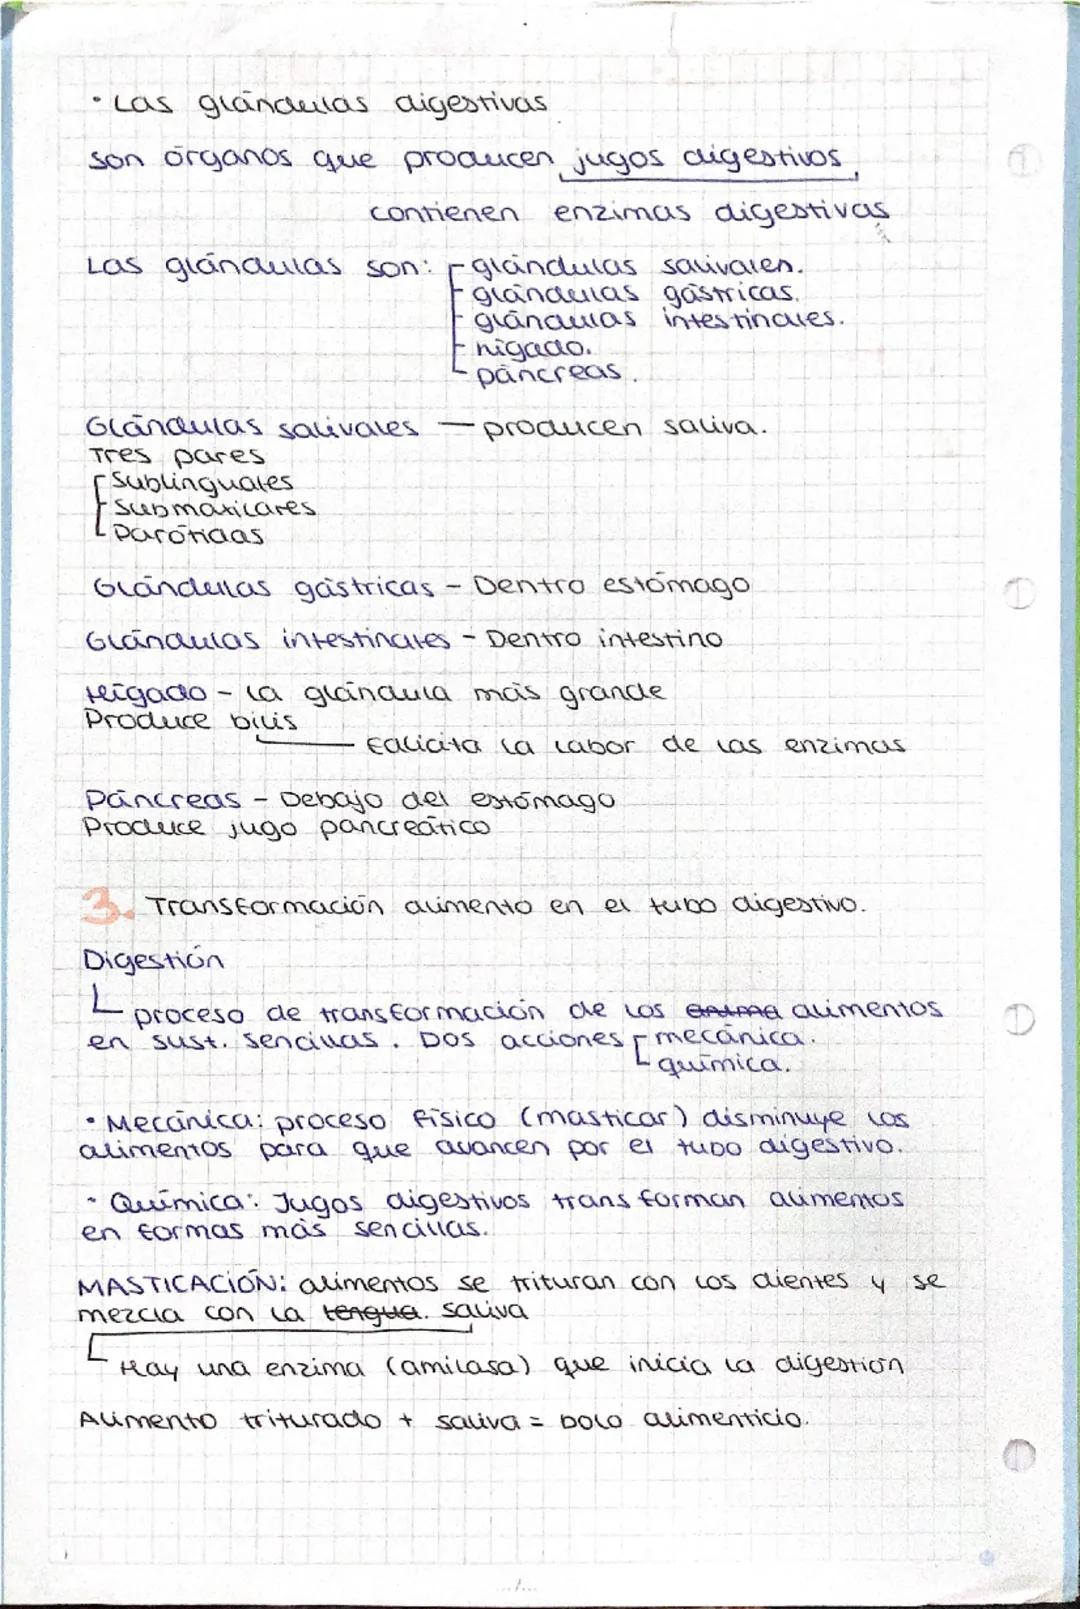 • Las glándulas digestivas
son órganos que producen jugos digestivos
contienen enzimas digestivas
Las glándulas son: - glándulas salivales.
- glándulas gástricas.
- glándulas intestinales.
- hígado.
- páncreas.
Glándulas salivales — producen saliva.
Tres pares
- Sublinguales
- Submaxilares
- Parótidas
Glándulas gástricas - Dentro estómago
Glándulas intestinales - Dentro intestino
Hígado - La glándula más grande
Produce bilis
Falicita la labor de las enzimas
Páncreas - Debajo del estómago
Produce jugo pancreático
3. Transformación alimento en el tubo digestivo.
Digestión
proceso de transformación de los alimentos
en sust. sencillas. Dos acciones - mecánica.
- química.
• Mecánica: proceso físico (masticar) disminuye los
alimentos para que avancen por el tubo digestivo.
• Química: Jugos digestivos transforman alimentos
en formas más sencillas.
MASTICACIÓN: alimentos se trituran con los dientes y se
mezcla con la lengua. saliva
Hay una enzima (amilasa) que inicia la digestión
Alimento triturado + saliva = bolo alimenticio.